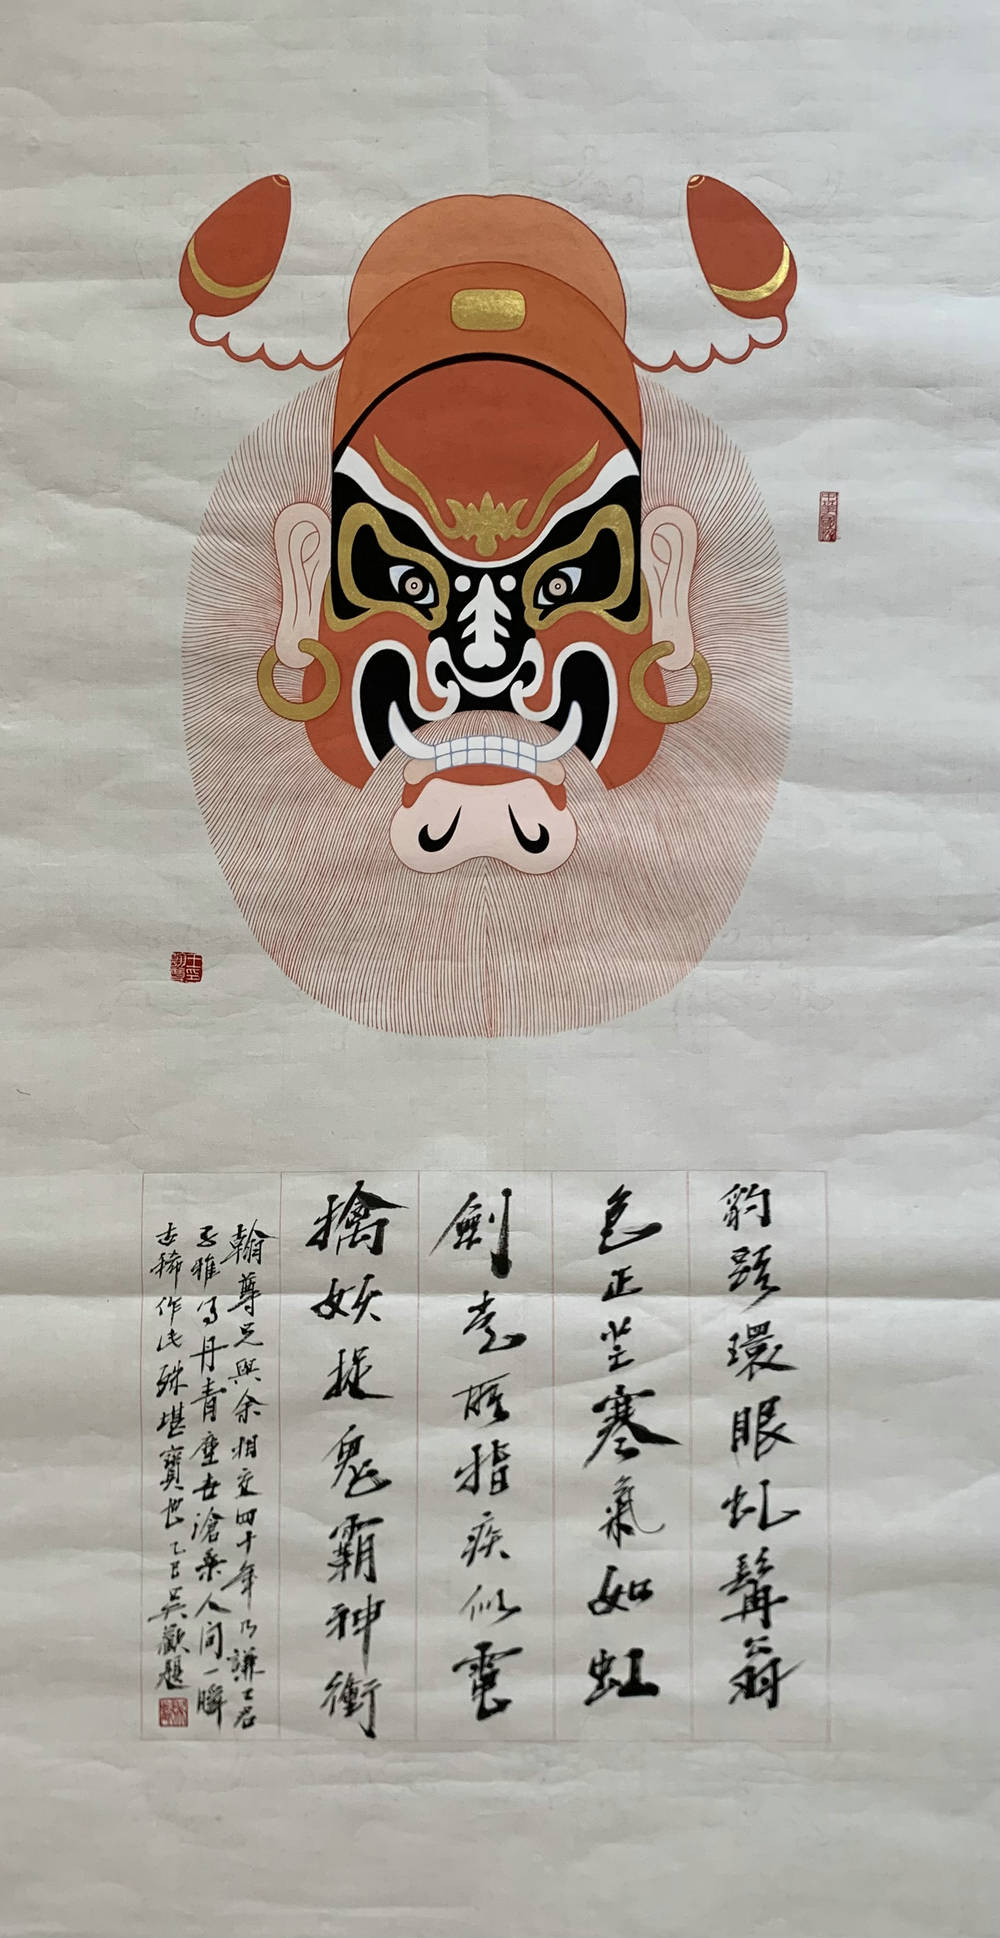 豹頭環眼虬髯翁
色正芒寒氣如虹
劍所指疾似電
擒妖捉鬼霸神衝
翰尊兄與余相交四十年乃謙士君
子雅寫丹青塵世滄桑人間一瞬
古稀作此殊堪寶世乙巳吳歡題